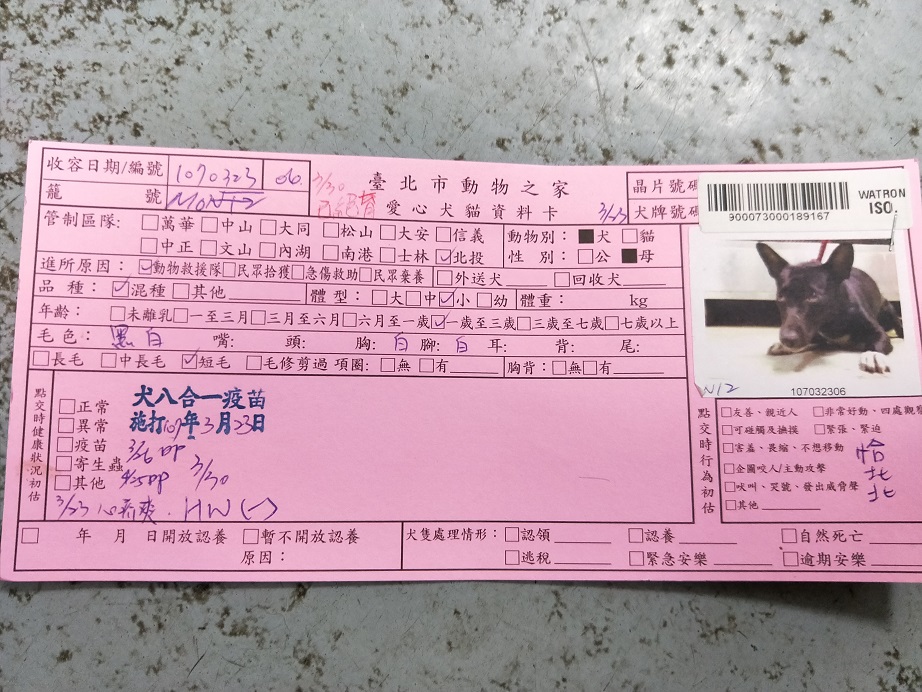 臺北市動物之家
愛心犬貓資料卡
收容日期/編號 1070323 06.
3/30
籠號 N12
3/23
晶片號碼
犬牌號碼
900073000189167
WATRON
ISO
管制區隊: □萬華 □中山 □大同 □松山 □大安 □信義
□中正 □文山 □內湖 □南港 □士林 ☑北投
動物別: ■犬 □貓
性別: □公 ■母
進所原因: ☑動物救援隊 □民眾拾獲 □急傷救助 □民眾棄養 □外送犬 □回收犬
品種: ☑混種 □其他 體型: □大 □中 ☑小 □幼 體重: kg
年齡: □未離乳 □一至三月 □三月至六月 □六月至一歲 ☑一歲至三歲 □三歲至七歲 □七歲以上
毛色: 黑白 嘴: 頭: 胸: 白 腳: 白 耳: 背: 尾:
□長毛 □中長毛 ☑短毛 □毛修剪過 項圈: □無 □有 胸背: □無 □有
N12
107032306
點交時健康狀況初估
□正常
□異常
□疫苗
□寄生蟲
□其他
犬八合一疫苗
施打107年3月23日
3/26 DP
4/5 DP 3/30
3/23 HW(-)
點交時行為初估
□友善、親近人 □非常好動、四處觀
□可碰觸及撫摸 □緊張、緊迫
□害羞、畏縮、不想移動
□企圖咬人/主動攻擊
□吠叫、哭號、發出威脅聲
□其他
恰北北
□ 年 月 日開放認養 □暫不開放認養
原因:
犬隻處理情形: □認領 □認養 □自然死亡
□逃稅 □緊急安樂 □逾期安樂